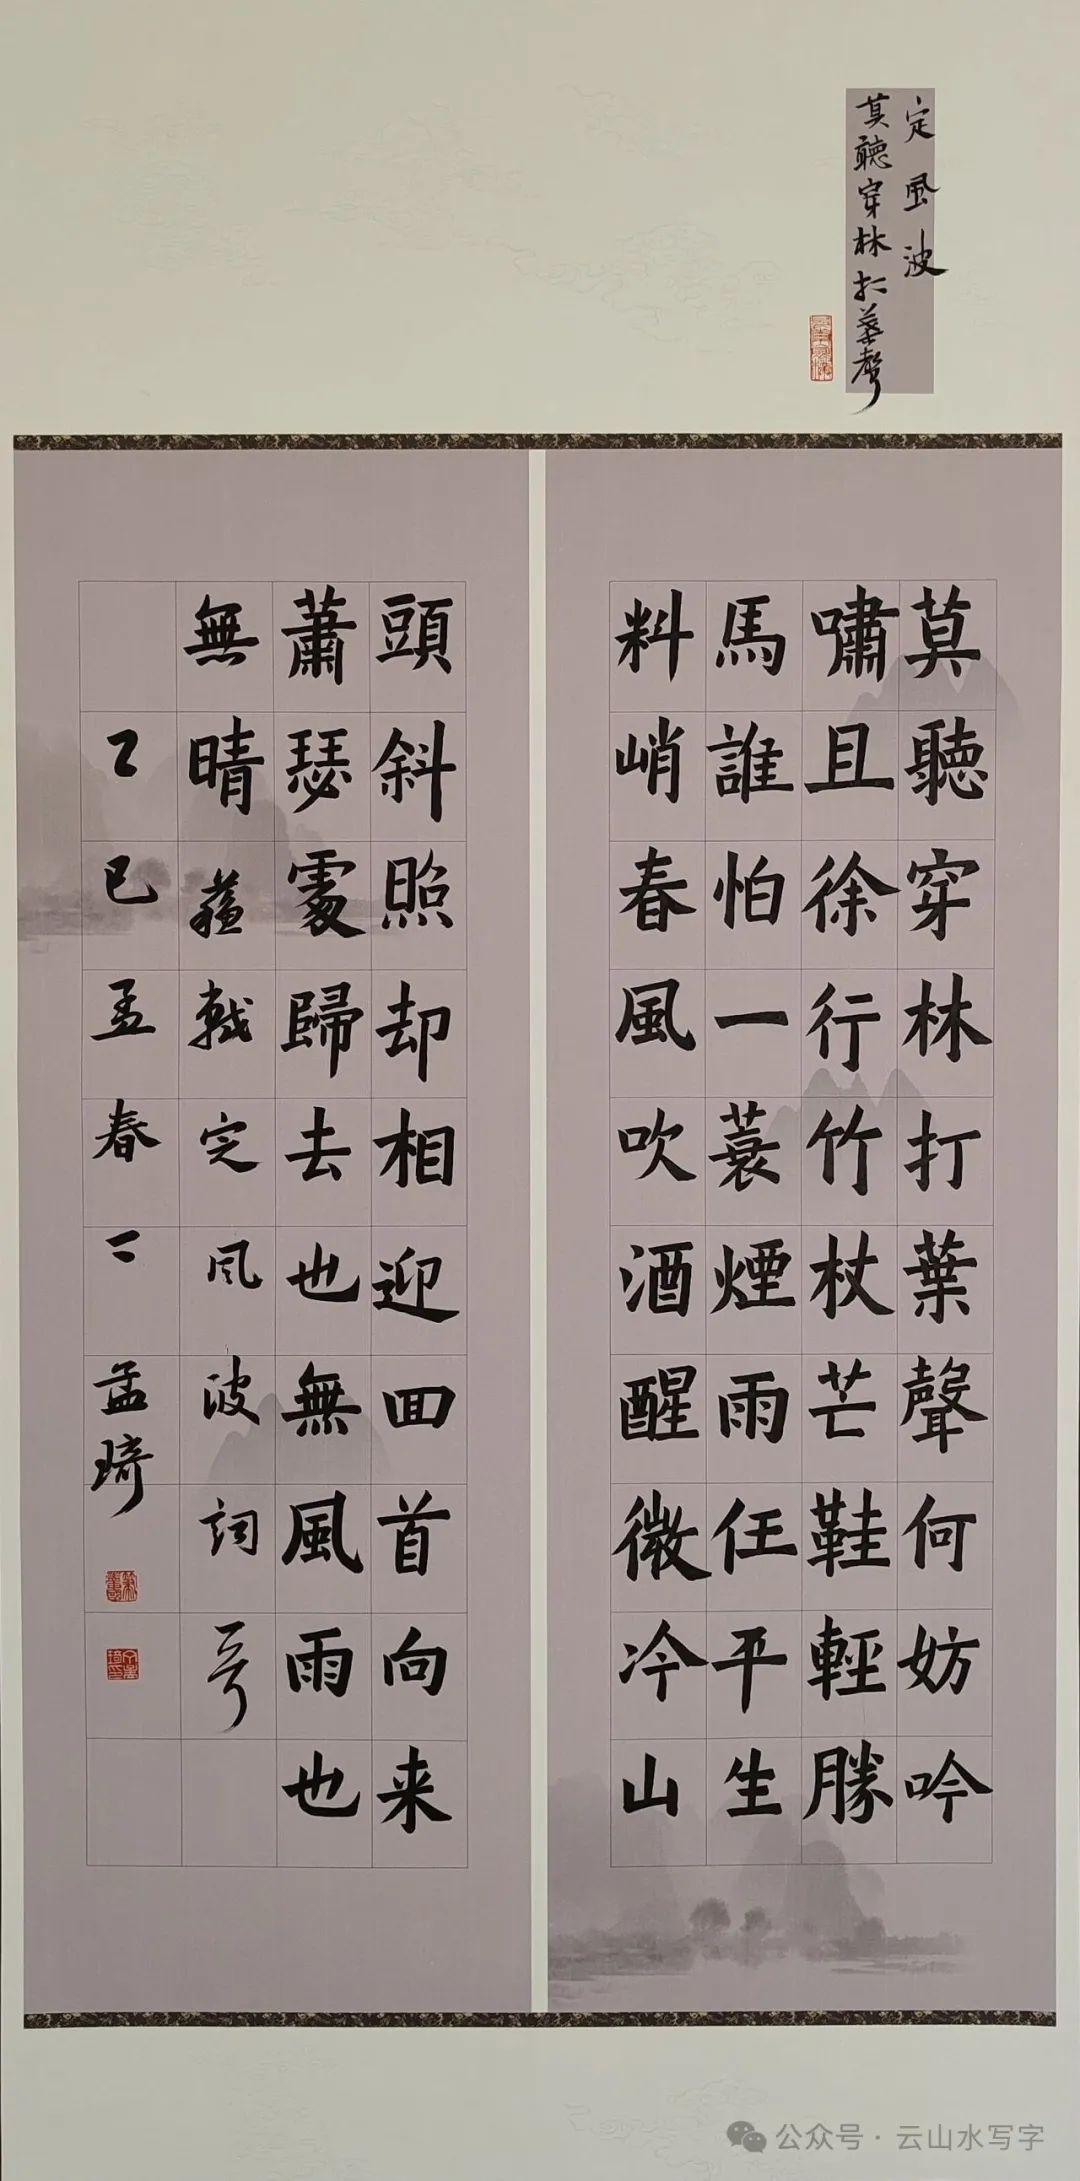 定風波
莫聽穿林打葉聲
莫聽穿林打葉聲何妨吟
嘯且徐行竹杖芒鞋輕勝
馬誰怕一蓑煙雨任平生
料峭春風吹酒醒微冷山
頭斜照却相迎回首向来
蕭瑟處歸去也無風雨也
無晴蘇軾定风波詞一首
乙巳孟春孟琦
公众号·云山水写字